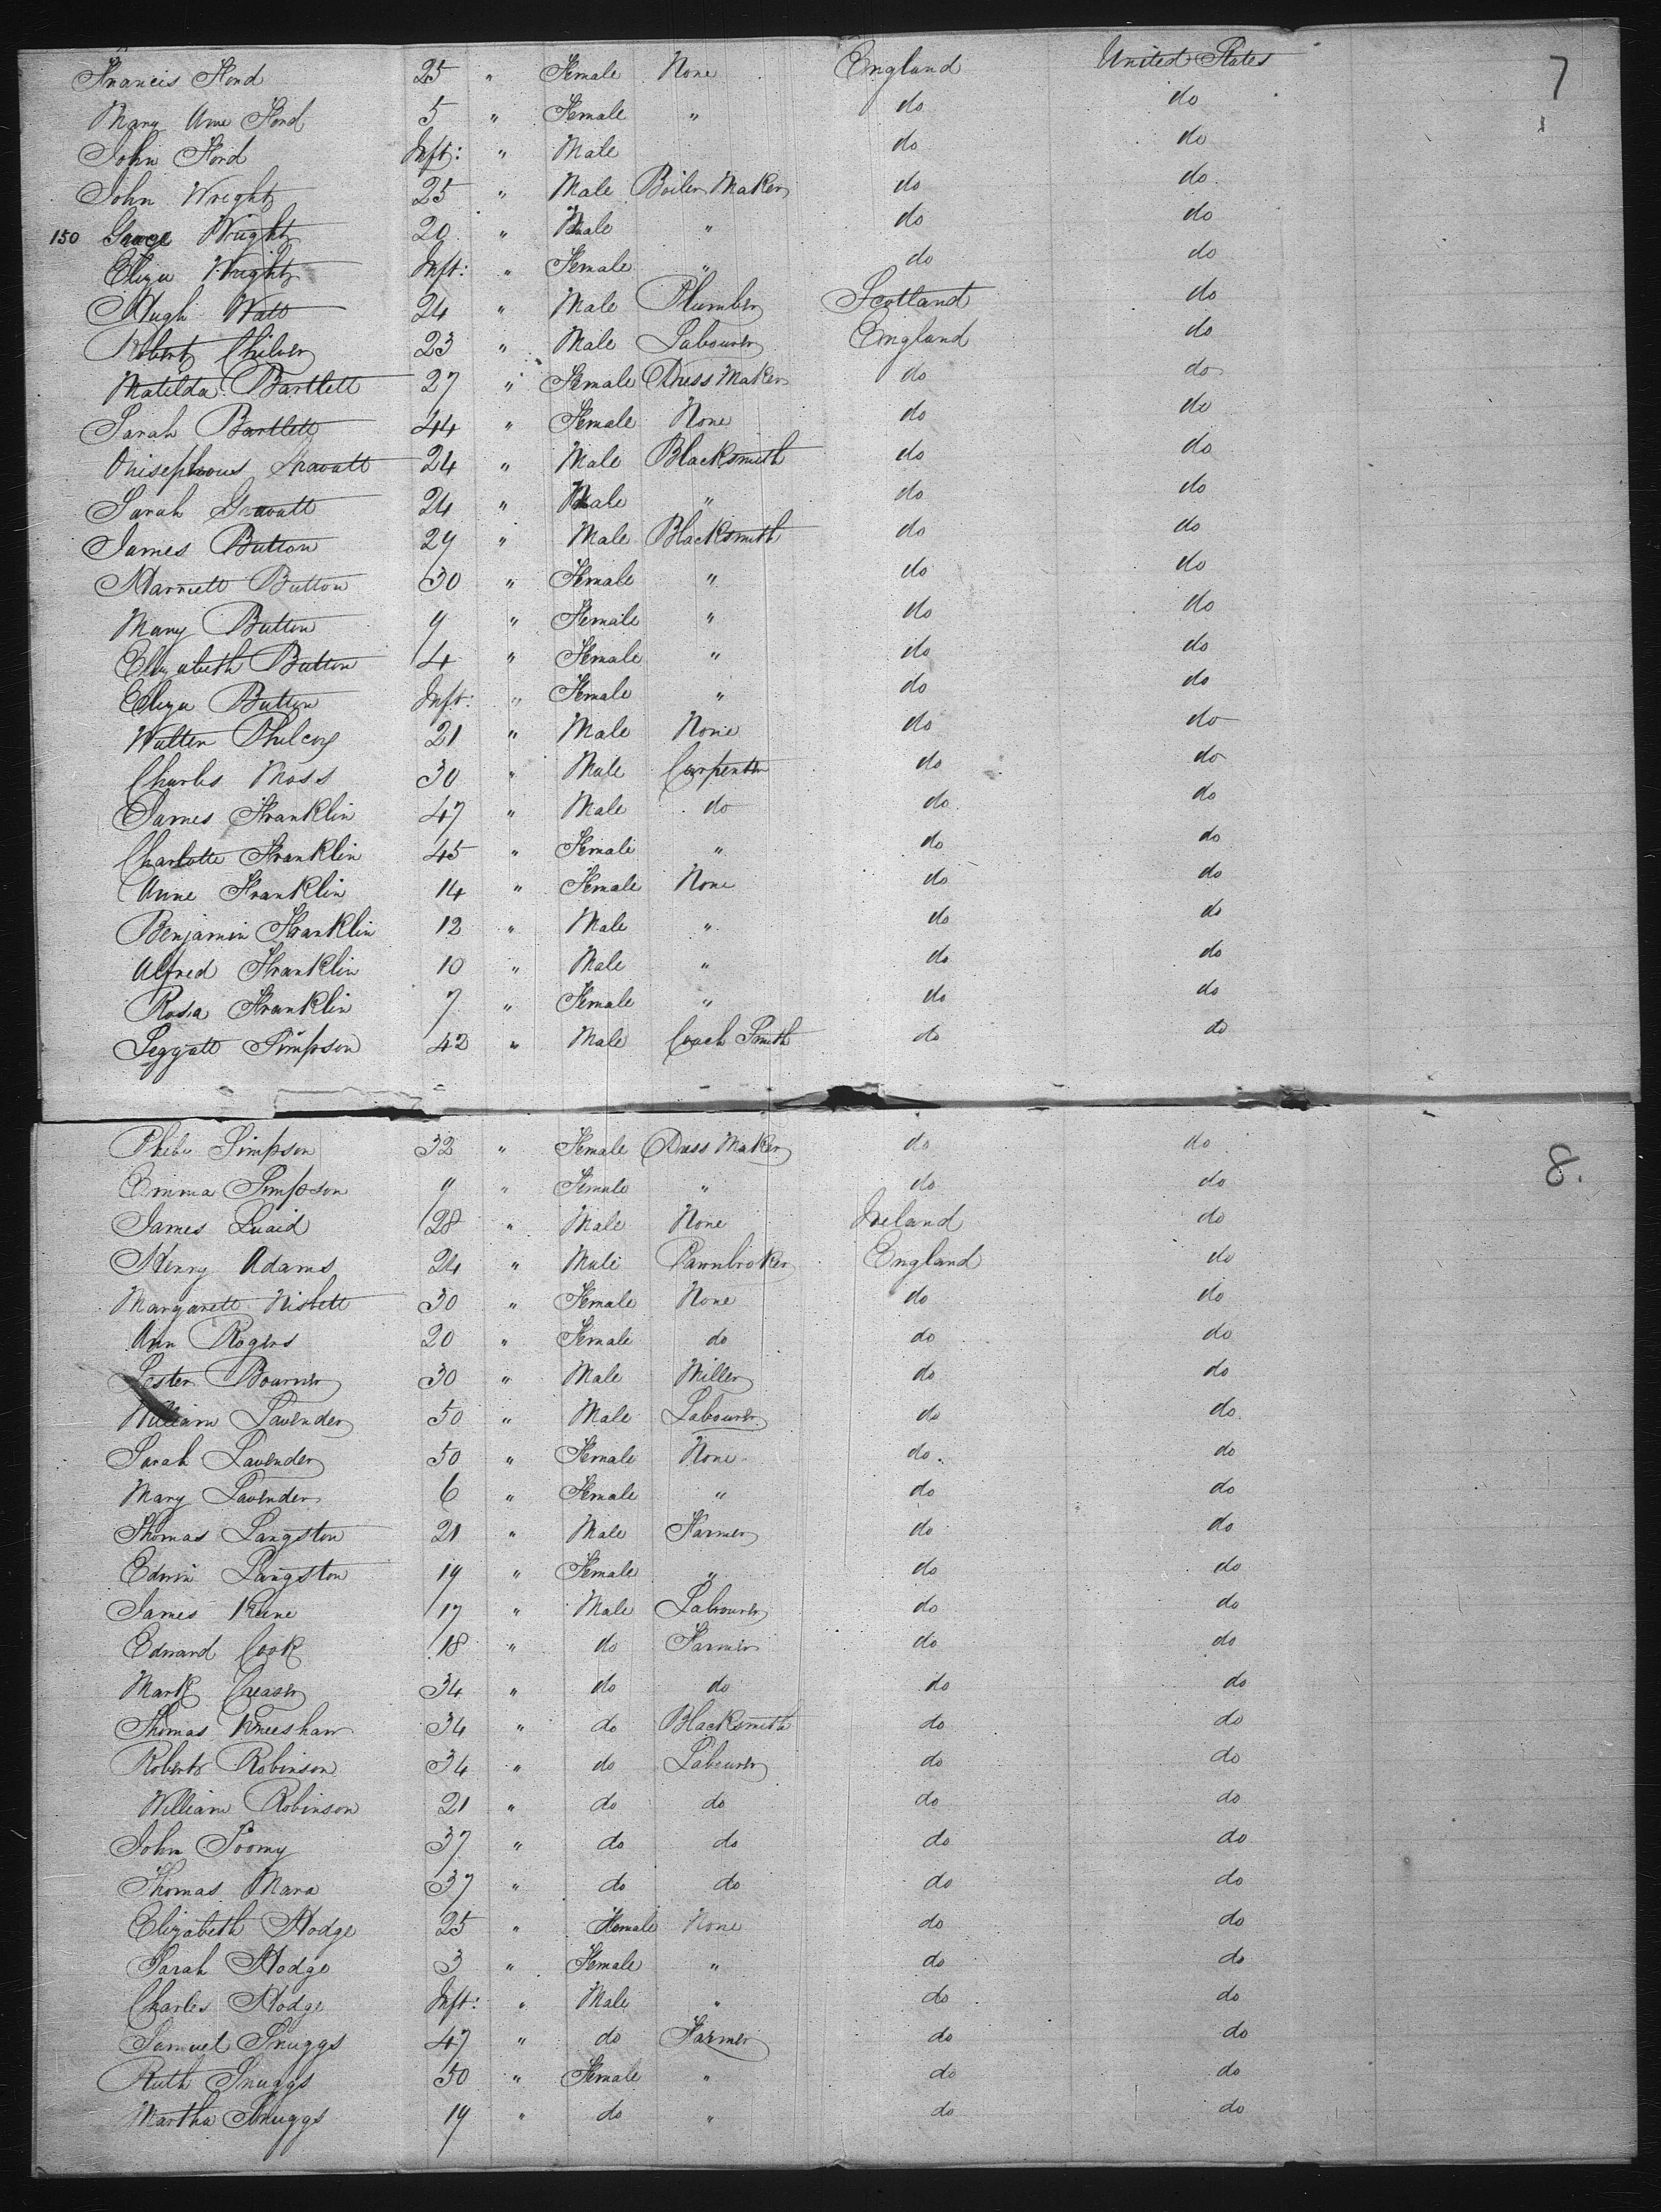 Francis Ford 25 " Female None England United States 7
Mary Ann Ford 5 " Female " do do
John Ford Inft: " Male do do
John Wright 25 " Male Boiler Maker do do
150 Grace Wright 20 " Male " do do
Eliza Wright Inft: " Female " do do
Hugh Watt 24 " Male Plumber Scotland do
Robert Chilver 23 " Male Labourer England do
Matilda Bartlett 27 " Female Dress Maker do do
Sarah Bartlett 44 " Female None do do
Onisephorous Gravatt 24 " Male Blacksmith do do
Sarah Gravatt 24 " Male " do do
James Button 29 " Male Blacksmith do do
Harriett Button 30 " Female " do do
Mary Button 9 " Female " do do
Elizabeth Button 4 " Female " do do
Eliza Button Inft: " Female " do do
Walter Philcox 21 " Male None do do
Charles Moss 30 " Male Carpenter do do
James Franklin 47 " Male do do do
Charlotte Franklin 45 " Female " do do
Anne Franklin 14 " Female None do do
Benjamin Franklin 12 " Male " do do
Alfred Franklin 10 " Male " do do
Rosa Franklin 7 " Female " do do
Leggatt Simpson 42 " Male Coach Smith do do
Phebe Simpson 32 " Female Dress Maker do do 8.
Emma Simpson 9 " Female " do do
James Quaid 28 " Male None Ireland do
Henry Adams 24 " Male Pawnbroker England do
Margarett Nisbett 30 " Female None do do
Ann Rogers 20 " Female do do do
Lester Bourner 30 " Male Miller do do
William Lavender 50 " Male Labourer do do
Sarah Lavender 50 " Female None do do
Mary Lavender 6 " Female " do do
Thomas Langston 21 " Male Farmer do do
Edwin Langston 19 " Female " do do
James Keene 17 " Male Labourer do do
Edward Cook 18 " do Farmer do do
Mark Creaser 34 " do do do do
Thomas Kneeshaw 34 " do Blacksmith do do
Robert Robinson 34 " do Labourer do do
William Robinson 21 " do do do do
John Toomy 37 " do do do do
Thomas Mara 37 " do do do do
Elizabeth Hodge 25 " Female None do do
Sarah Hodge 3 " Female " do do
Charles Hodge Inft: " Male " do do
Samuel Snuggs 47 " do Farmer do do
Ruth Snuggs 50 " Female " do do
Martha Snuggs 19 " do " do do